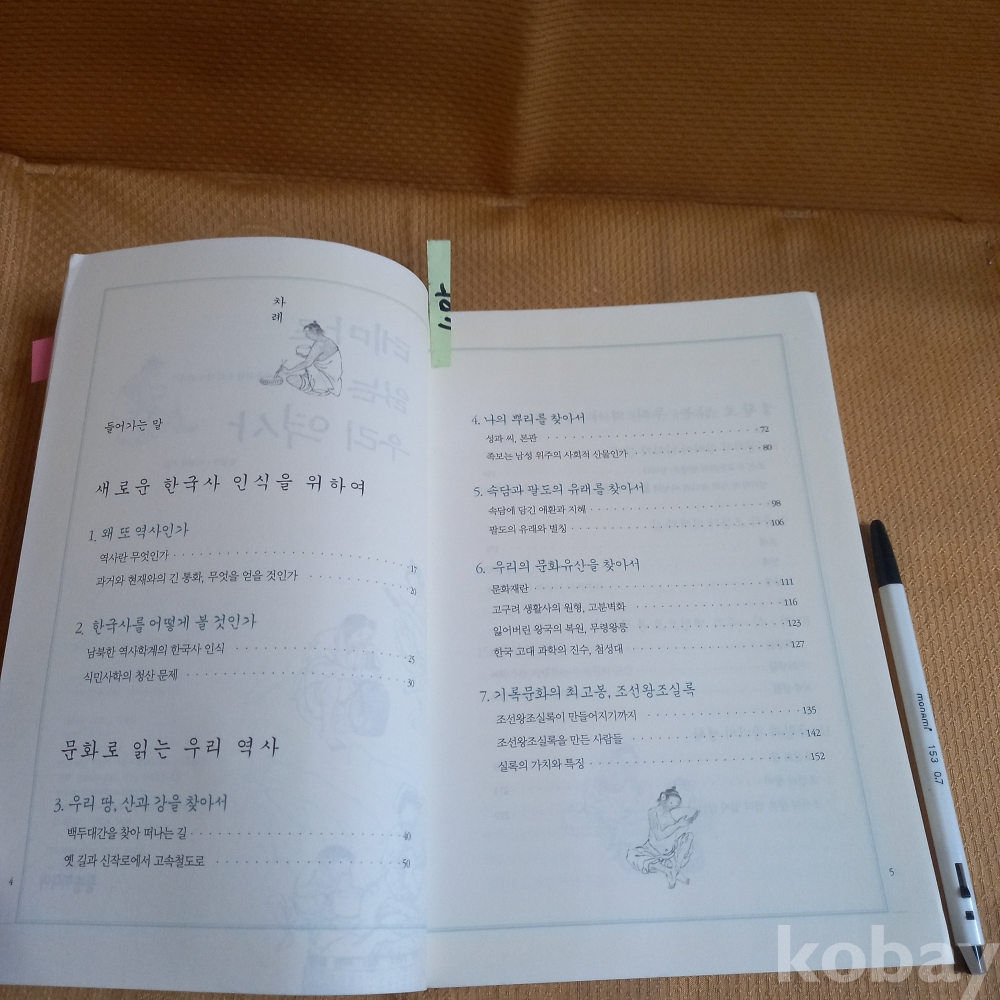 차
례
들어가는 말
새로운 한국사 인식을 위하여
1. 왜 또 역사인가
역사란 무엇인가 17
과거와 현재와의 긴 통화, 무엇을 얻을 것인가 20
2. 한국사를 어떻게 볼 것인가
남북한 역사학계의 한국사 인식 25
식민사학의 청산 문제 30
문화로 읽는 우리 역사
3. 우리 땅, 산과 강을 찾아서
백두대간을 찾아 떠나는 길 40
옛 길과 신작로에서 고속철도로 50
4
4. 나의 뿌리를 찾아서
성과 씨, 본관 72
족보는 남성 위주의 사회적 산물인가 80
5. 속담과 팔도의 유래를 찾아서
속담에 담긴 애환과 지혜 98
팔도의 유래와 별칭 106
6. 우리의 문화유산을 찾아서
문화재란 111
고구려 생활사의 원형, 고분벽화 116
잃어버린 왕국의 복원, 무령왕릉 123
한국 고대 과학의 진수, 첨성대 127
7. 기록문화의 최고봉, 조선왕조실록
조선왕조실록이 만들어지기까지 135
조선왕조실록을 만든 사람들 142
실록의 가치와 특징 152
5
monami 153 0.7
kobay